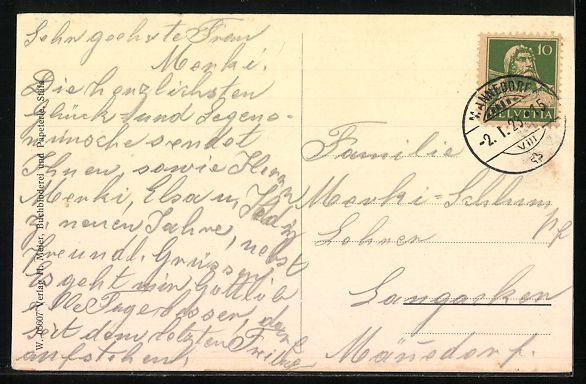 Sehr geehrte Frau
Merki!
Die herzlichsten
Glück- und Segens-
wünsche sendet
Ihnen, sowie Herr
Merki, Elsa u.
z. neuen Jahre, nebst
freundl. Grüssen.
Es geht mir gottlob
alle Tage besser,
seit dem letzten
aufstehen.
W. 15607 Verlag H. Meier, Buchbinderei und Papeterie, Stäfa
10
HELVETIA
MÄNNEDORF
-2.I.25.
VIII
Familie
Merki-Schlum
Lohner
Langacker
Männedorf.